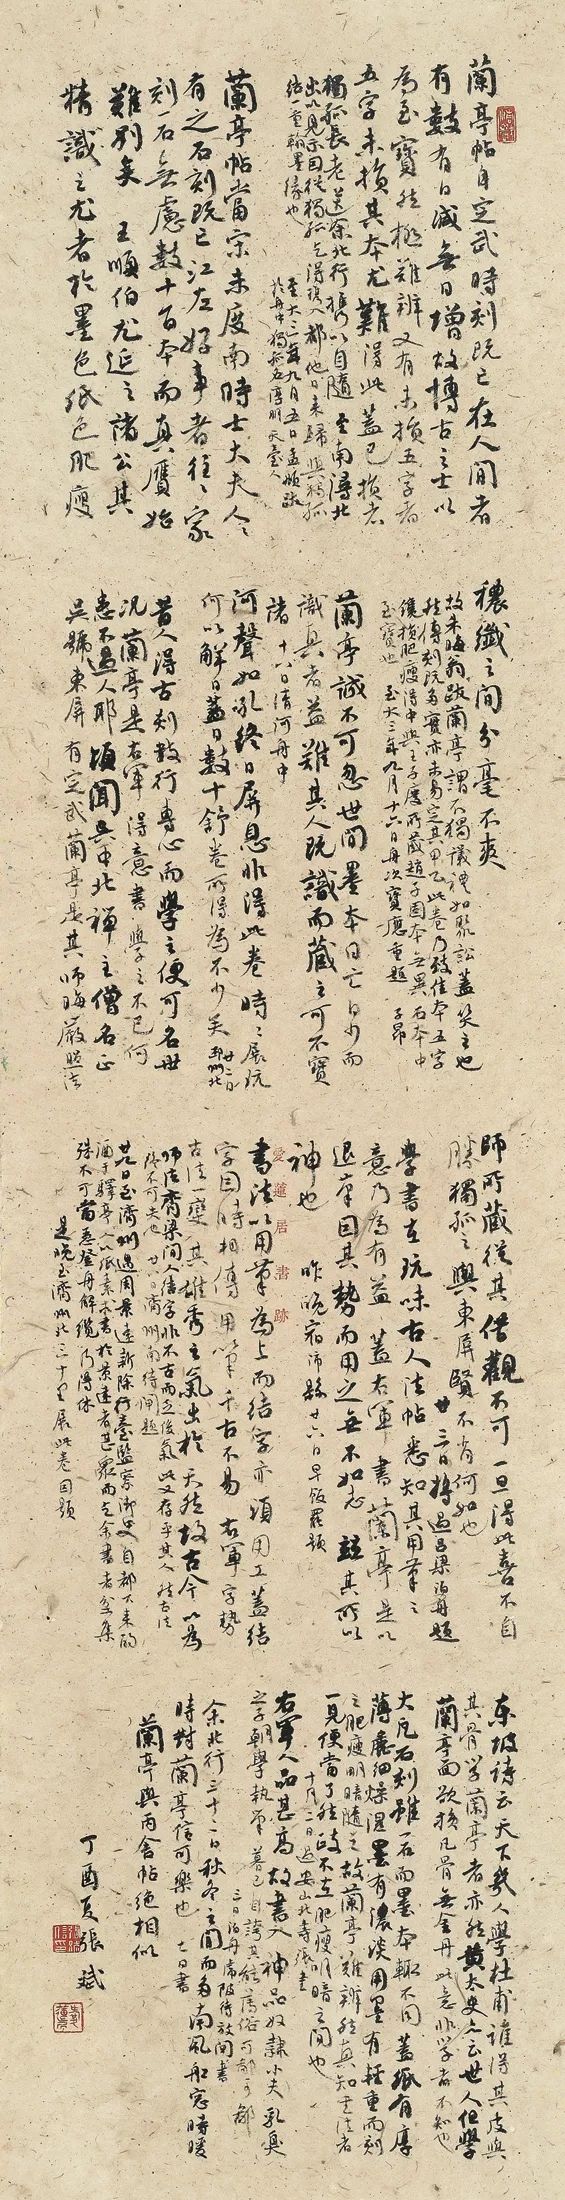 蘭亭帖自定武時刻既亡在人間者
有數有日減無日增故博古之士以
為至寶然極難辨又有未損五字者
五字未損其本尤難得此蓋已損者
獨孤長老送余北行攜以自隨至南潯北
出以見示因從獨孤乞得携入都他日来歸與獨孤
結一重翰墨緣也
至大三年九月五日孟頫跋
於舟中獨孤名淳朋天台人
蘭亭帖當宋未度南時士大夫人人
有之石刻既亡江左好事者往往家
刻一石無慮數十百本而真贗始
難別矣 王順伯尤延之諸公其
精識之尤者於墨色紙色肥瘦
穠纖之間分毫不爽
故朱晦翁跋蘭亭謂不獨議禮如聚訟蓋笑之也
然傳刻既多實亦未易定其甲乙此卷乃致佳本五字
鑱損肥瘦得中與王子慶所藏趙子固本無異石本中
至寶也 至大三年九月十六日舟次寶應重題 子昂
蘭亭誠不可忽世間墨本日亡日少而
識真者益難其人既識而藏之可不寶
諸 十八日清河舟中
河聲如吼終日屏息非得此卷時時展玩
何以解日蓋日數十舒卷所得為不少矣 廿二日邳州北
昔人得古刻數行專心而學之便可名世
況蘭亭是右軍得意書學之不已何
患不過人耶 頃聞吳中北禪主僧名正
吳號東屏 有定武蘭亭是其師晦巖照法
師所藏從其借觀不可一旦得此喜不自
勝獨孤之與東屏賢不肖何如也
廿三日將過呂梁泊舟題
學書在玩味古人法帖悉知其用筆之
意乃為有益 蓋右軍書蘭亭是以
退筆因其勢而用之無不如志茲其所以
神也 昨晚宿沛縣廿六日早飯罷題
愛蓮居書跡
書法以用筆為上而結字亦須用工蓋結
字因時相傳用筆千古不易 右軍字勢
古法一變其雄秀之氣出於天然故古今以為
師法齊梁間人結字非不古而乏俊氣此又存乎其人然古法
終不可失也 廿八日濟州南待閘題
廿九日至濟州遇周景遠新除行臺監察御史自都下来酌
酒于驛亭人以紙素求書於景遠者甚眾而乞余書者坌集
殊不可當急登舟解纜乃得休
是晚至濟州北三十里展此卷因題
東坡詩云天下幾人學杜甫誰得其皮與
其骨學蘭亭者亦然黃太史亦云世人但學
蘭亭面欲換凡骨無金丹此意非學書者不知也
大凡石刻雖一石而墨本輒不同蓋紙有厚
薄麤細燥濕墨有濃淡用墨有輕重而刻
之肥瘦明暗隨之故蘭亭難辨然真知書法者
一見便當了然政不在肥瘦明暗之間也
十月二日過安山北壽張書
右軍人品甚高故書入神品奴隸小夫乳臭
之子朝學執筆暮已自誇其能薄俗可鄙可鄙
三日泊舟虎陂待放閘書
余北行三十二日秋冬之間而多南風船窓時暖
時對蘭亭信可樂也 七日書
蘭亭與丙舍帖絕相似
丁酉夏張斌